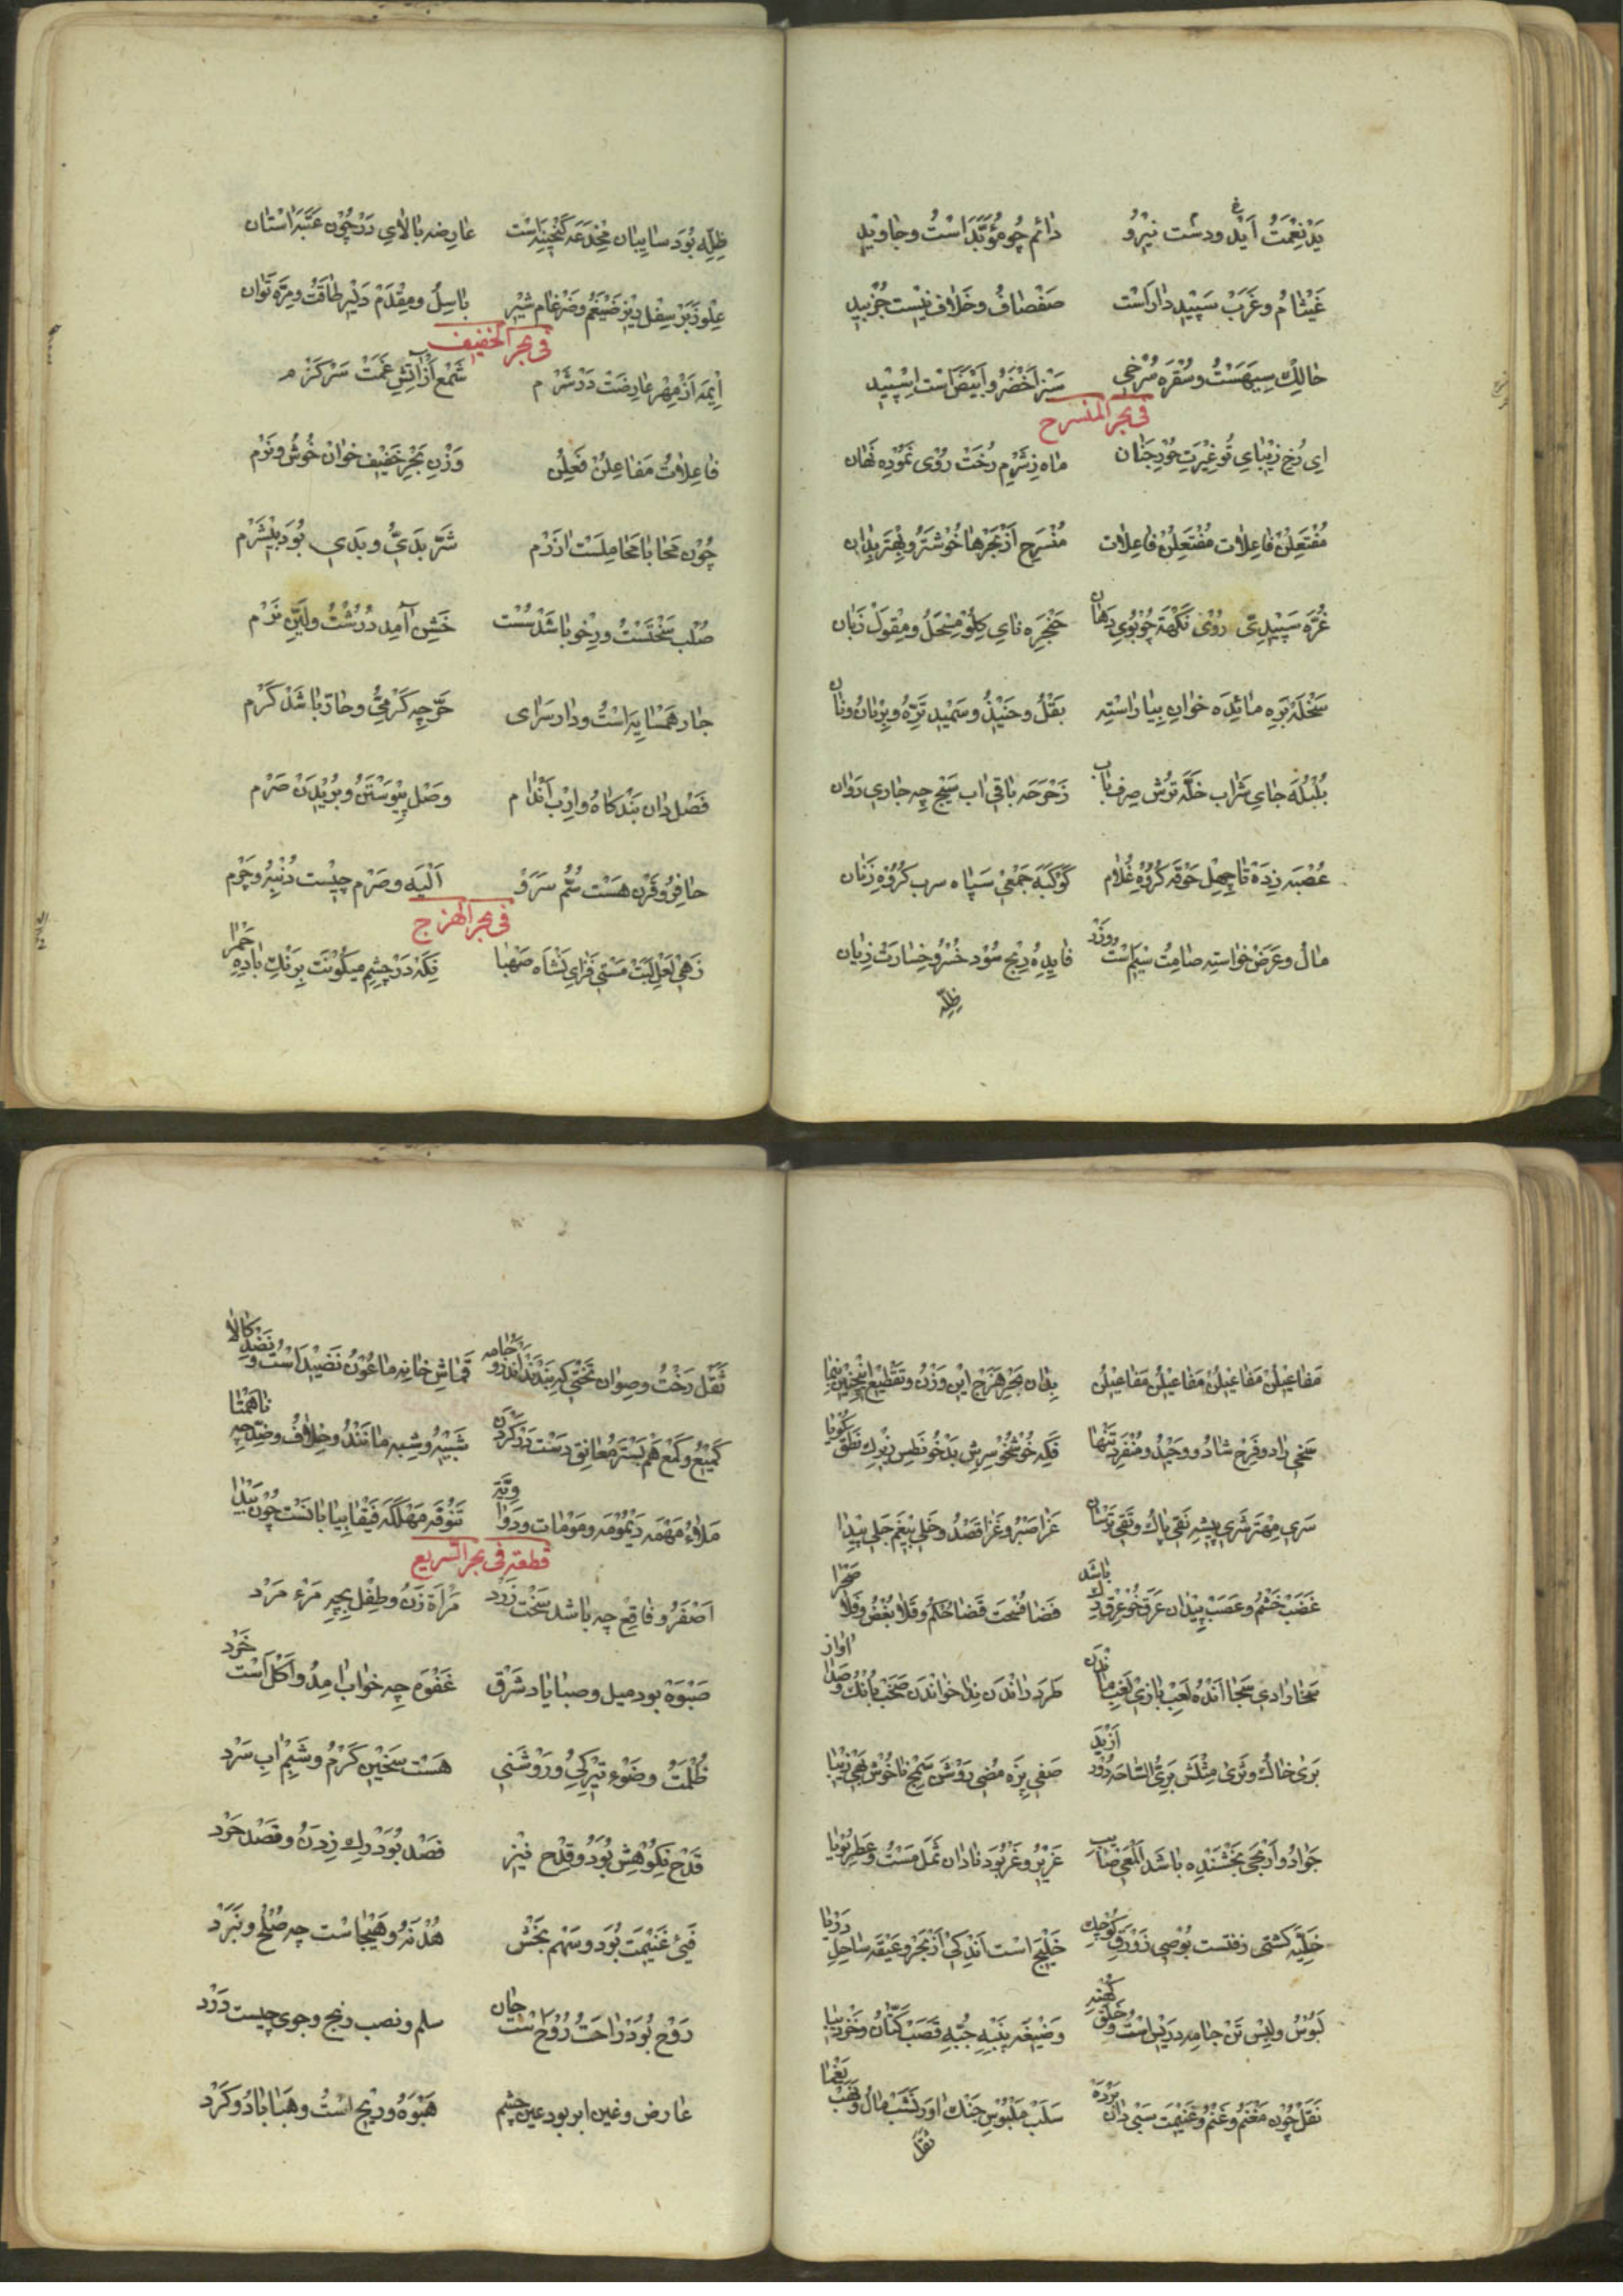 یَدْ نِعْمَتُ اَیْد ودست نیرُو دٰائم چو مُؤَبَّدَ است و جاوید
غ
غَیْثامُ وغَرَبْ سَپیید دار است صَفْصافُ وخَلاف نیست جُز بید
حٰالِك سیهست و سُقْره سُرْخی سبز اَخْضَرُ و اَبْیَضَ است اِسْپید
فی بحر المنسرح
ای رُخِ زیبٰای تُو غیْرتِ حُورِ جَنٰان مٰاه ز شَرْمِ رُخَتْ رُوی نموده نهٰان
مُفْتَعِلُنْ فاعِلاٰت مُفْتَعِلُنْ فاعِلاٰت مُنْسَرِح اَز بَحْرهٰا خُوشتَرُ و بِهْتَر بدٰان
غُرّه سَپییدیّ روُیْ نَكْهَة چو بُوی دهٰان حَنْجَره نٰای كلو مِسْحَلُ و مِقْوَل زبٰان
سَخْلَه بَرِه مٰائِدَه خوٰانِ بیٰارٰاسته بَقْلُ و حَنیْذُ و سَمْید تَرّه و بِرْیٰانُ و نٰان
بُلْبُلَه جٰای شراب خَلّه تُرُش صِرْف نٰاب زَحْزَحه باقی اب سَیْح چه جٰاری روٰان
عُصْبَه زده تٰا چِهِل حَوْقه كُرُوهِ غُلاٰم كَوْكَبَه جَمْعی سپٰاه سرب كُرُوهِ زنٰان
مٰالُ و عَرَضْ خواسته صٰامتُ سیٰم است وزر فٰایده رِبْح سُود خُسْرُ و خِسٰارت زیٰان
ظِلّه
ظِلّه بُوَد سٰایبٰان مِخْدَعَه كَنْجینه است عٰارِضه بٰالاٰی دَرْ چون عَتَبه اسْتٰان
عِلْو زبَرْ سِفْل زیر ضَیْغَمُ و ضَرْغام شیر بٰاسِلُ و مِقْدٰم دلیر طٰاقَتُ و مِرّه توٰان
فی بحر الخفیف
اِیمَه اَزْ مِهْرِ عٰارِضَتْ دَر شَرْم شَمْع اَز اٰتِشِ غَمَتْ سَر كَرْم
فٰاعِلاٰتُنْ مَفٰاعِلُنْ فَعِلُنْ وَزْنِ بَحْرِ خَفیف خوٰان خُوشُ و نَرْم
چُوْن مَحٰابٰا مَحٰامِلَسْت اٰزَرْم شَرّ بَدیُّ و بَدی بُوَد بیشَرْم
صُلْب سَخْتَسْتُ و رِخْو بٰاشَد سُسْت خَشِن آمد دُرُشْتُ و لَیّنِ نَرْم
جٰار هَمْسٰایه اسْتُ و دٰار سَرٰای حَرّ چه كَرْمیُّ و حٰارّ بٰاشَد كَرْم
فَصْل دٰان بَنْدكٰاهُ و اِرْب اَنْدٰام وصْل پَیْوَسْتَنُ و بُرِیْدَنْ صَرْم
حٰافِرُ و قَرْن هَسْت سُمّ سَرَوْ اَلْیَه و صَرْم چیست دُنْبه و چَرْم
فی بحر الهزج
زهی لَعْلِ لَبَتْ مَسْتی فَزٰای نَشْأه صَهْبٰا نِكَه در چِشمِ میكونت برنك بٰاده حَمْرٰا
مَفٰاعِیْلُنْ مَفٰاعِیْلُنْ مَفٰاعِیْلُنْ مَفٰاعِیْلُنْ بِدٰان بَحْرِ هَزَجْ این وَزْنُ و تَقْطیع اینچنین بنمٰا
سَخی رٰاد و فَرِحْ شٰادُ و وَحیْدُ و مُنْفَرِد تَنْهٰا فَكِه خُوشْخُو شَرِس بَدْخُو نَطِس زیرك نَطَقْ كُویٰا
سَری مِهْتَر شَری پیشه نَقی پٰاكُ و تَقی ترسٰان عَزٰا صَبْرُ و غَزٰا قَصْدُ و خَلی بیغَم جَلی پیدٰا
غَضَبْ خَشْمُ و عَصَبْ پیدٰان عَرَق خُوْ عِرْق رك بٰاشد فَضٰا فُسْحت قَضٰا حُكْمُ و قَلاٰ بُغْضُ و فَلاٰ صَحْرٰا
سَخٰا رٰادی سَجٰا اَنْدُه لَعِبْ بٰازی لَغِبْ مٰاندن طَرَد رٰانْدَن نِدٰا خوٰانْدَن صَخَبْ بٰانْكُ و صَدٰا اوٰاز
بَری خٰاكُ و ثَرٰی مِثْلَش بَریُّ السّٰاحه دُوْر اَز بَد صَفی بِزَه مُضی رَوْشَن سَمِج نٰاخُوش بَهی زیبٰا
جَوٰادُ و اَرْیَحی بَخْشَنْده بٰاشَد اَلْمَعی صٰایب غَریْرُ و غَرْ بُوَد نٰادٰان ثَمَل مَسْتُ و عَطِر بُویٰا
خَلِیّه كَشْتی زفتست بُوْصی زَوْرَقِ كُوچك خَلیج است اندكی اَز بَحْر و عَیْقَه سٰاحِلِ دَرْیٰا
لَبُوْسُ و لِبْس تَنْ جٰامه دریس اسْتُ و خَلَق كُهْنه وَضیْعَه پَنْبه جُبّه قَصَبْ كَتّٰانُ و خَز دیبٰا
نَفَل چُون مَغْنَمُ و غُنْمُ و غَنیْمت سَبی دٰان بَرْدَه سَلَبْ مَلْبُوسِ جَنْك اٰوَر نَشَبْ مٰالُ و نَهَبْ یَغْمٰا
ثقل
ثَقَل رَخْتُ و صِوٰان تَخْتی كه بَنْدَنْد اَنْدَرُو جٰامه قُمٰاشِ خٰانه مٰاعُونُ نَضِیْد اَسْتُ و نَضَد كٰالاٰ
كَمیْعُ و كَمْع هَم بَستر مُعٰانِق دست در كَرْدن شَبیْهُ و شِبه مٰانَنْدُ و خِلاٰفُ و ضِدّ چه نٰاهَمْتٰا
مَلاٰءُ مَهْمَه دَیْمُومَه و مَوْمٰات و دَوٰا ویّه تَنُوْفَه مَهْلَكَه فَیْفٰا بیٰابٰانَسْت چُون بَیْدٰا
قطعة فی بحر السریع
اَصْفَرُ و فٰاقِعْ چه بٰاشد سَخْت زَرْد مَرْاَة زَنُ و طِفْل بچه مَرْء مَرْد
صَبْوَة بود میل و صبٰا بٰاد شَرْق غَفْوَه چه خوٰاب اٰمدُ و اَكْل اَسْت خَرْد
ظُلْمَتُ و ضَوْء تیركیُ و رَوْشَنی هست سَخیْن كَرْمُ و شَبِمْ اٰب سَرْد
قَدْح نكوهِش بُوَدُ و قِدْح تیْر فَصْد بُوَد رك زدَنُ و قَصْد خَرْد
فَیْئ غَنیْمَت بُوَد و سَهْم بَخْش هُدْنَه و هَیْجٰاست چه صُلْحُ و نَبَرْد
رَوْح بُوَد رٰاحَتُ رُوْح است جٰان سلم و نصب رنج و جوی چیست دَرْد
عٰارض و غین ابر بود عین چشم هَبْوَهُ و ریح است و هَبٰا بٰادُ و كَرْد